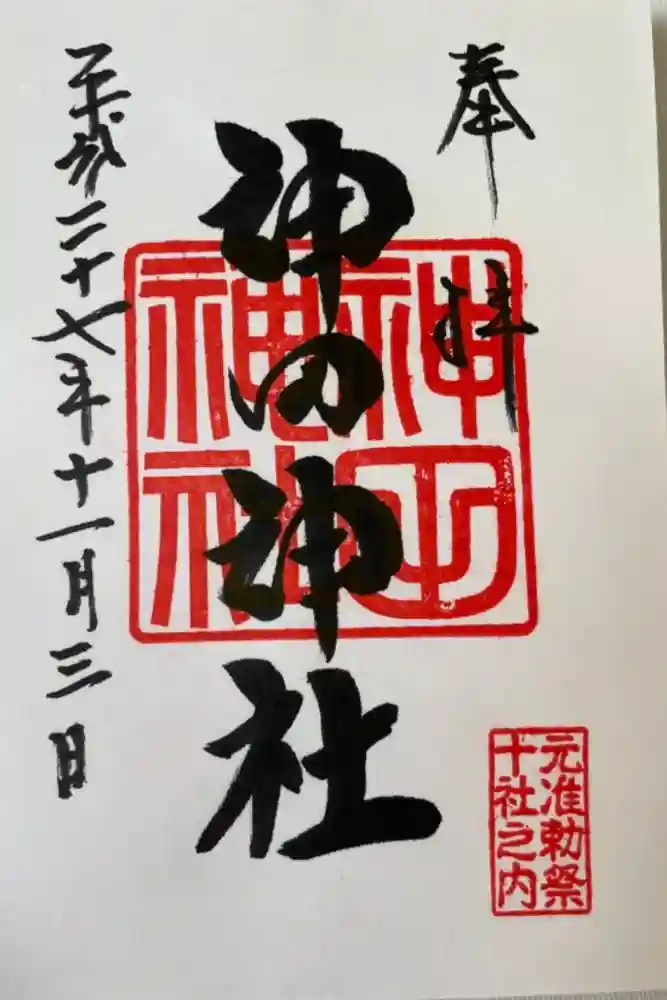 奉拝
元准勅祭
十社之内
神田
神社
神田神社
平成二十七年十一月三日